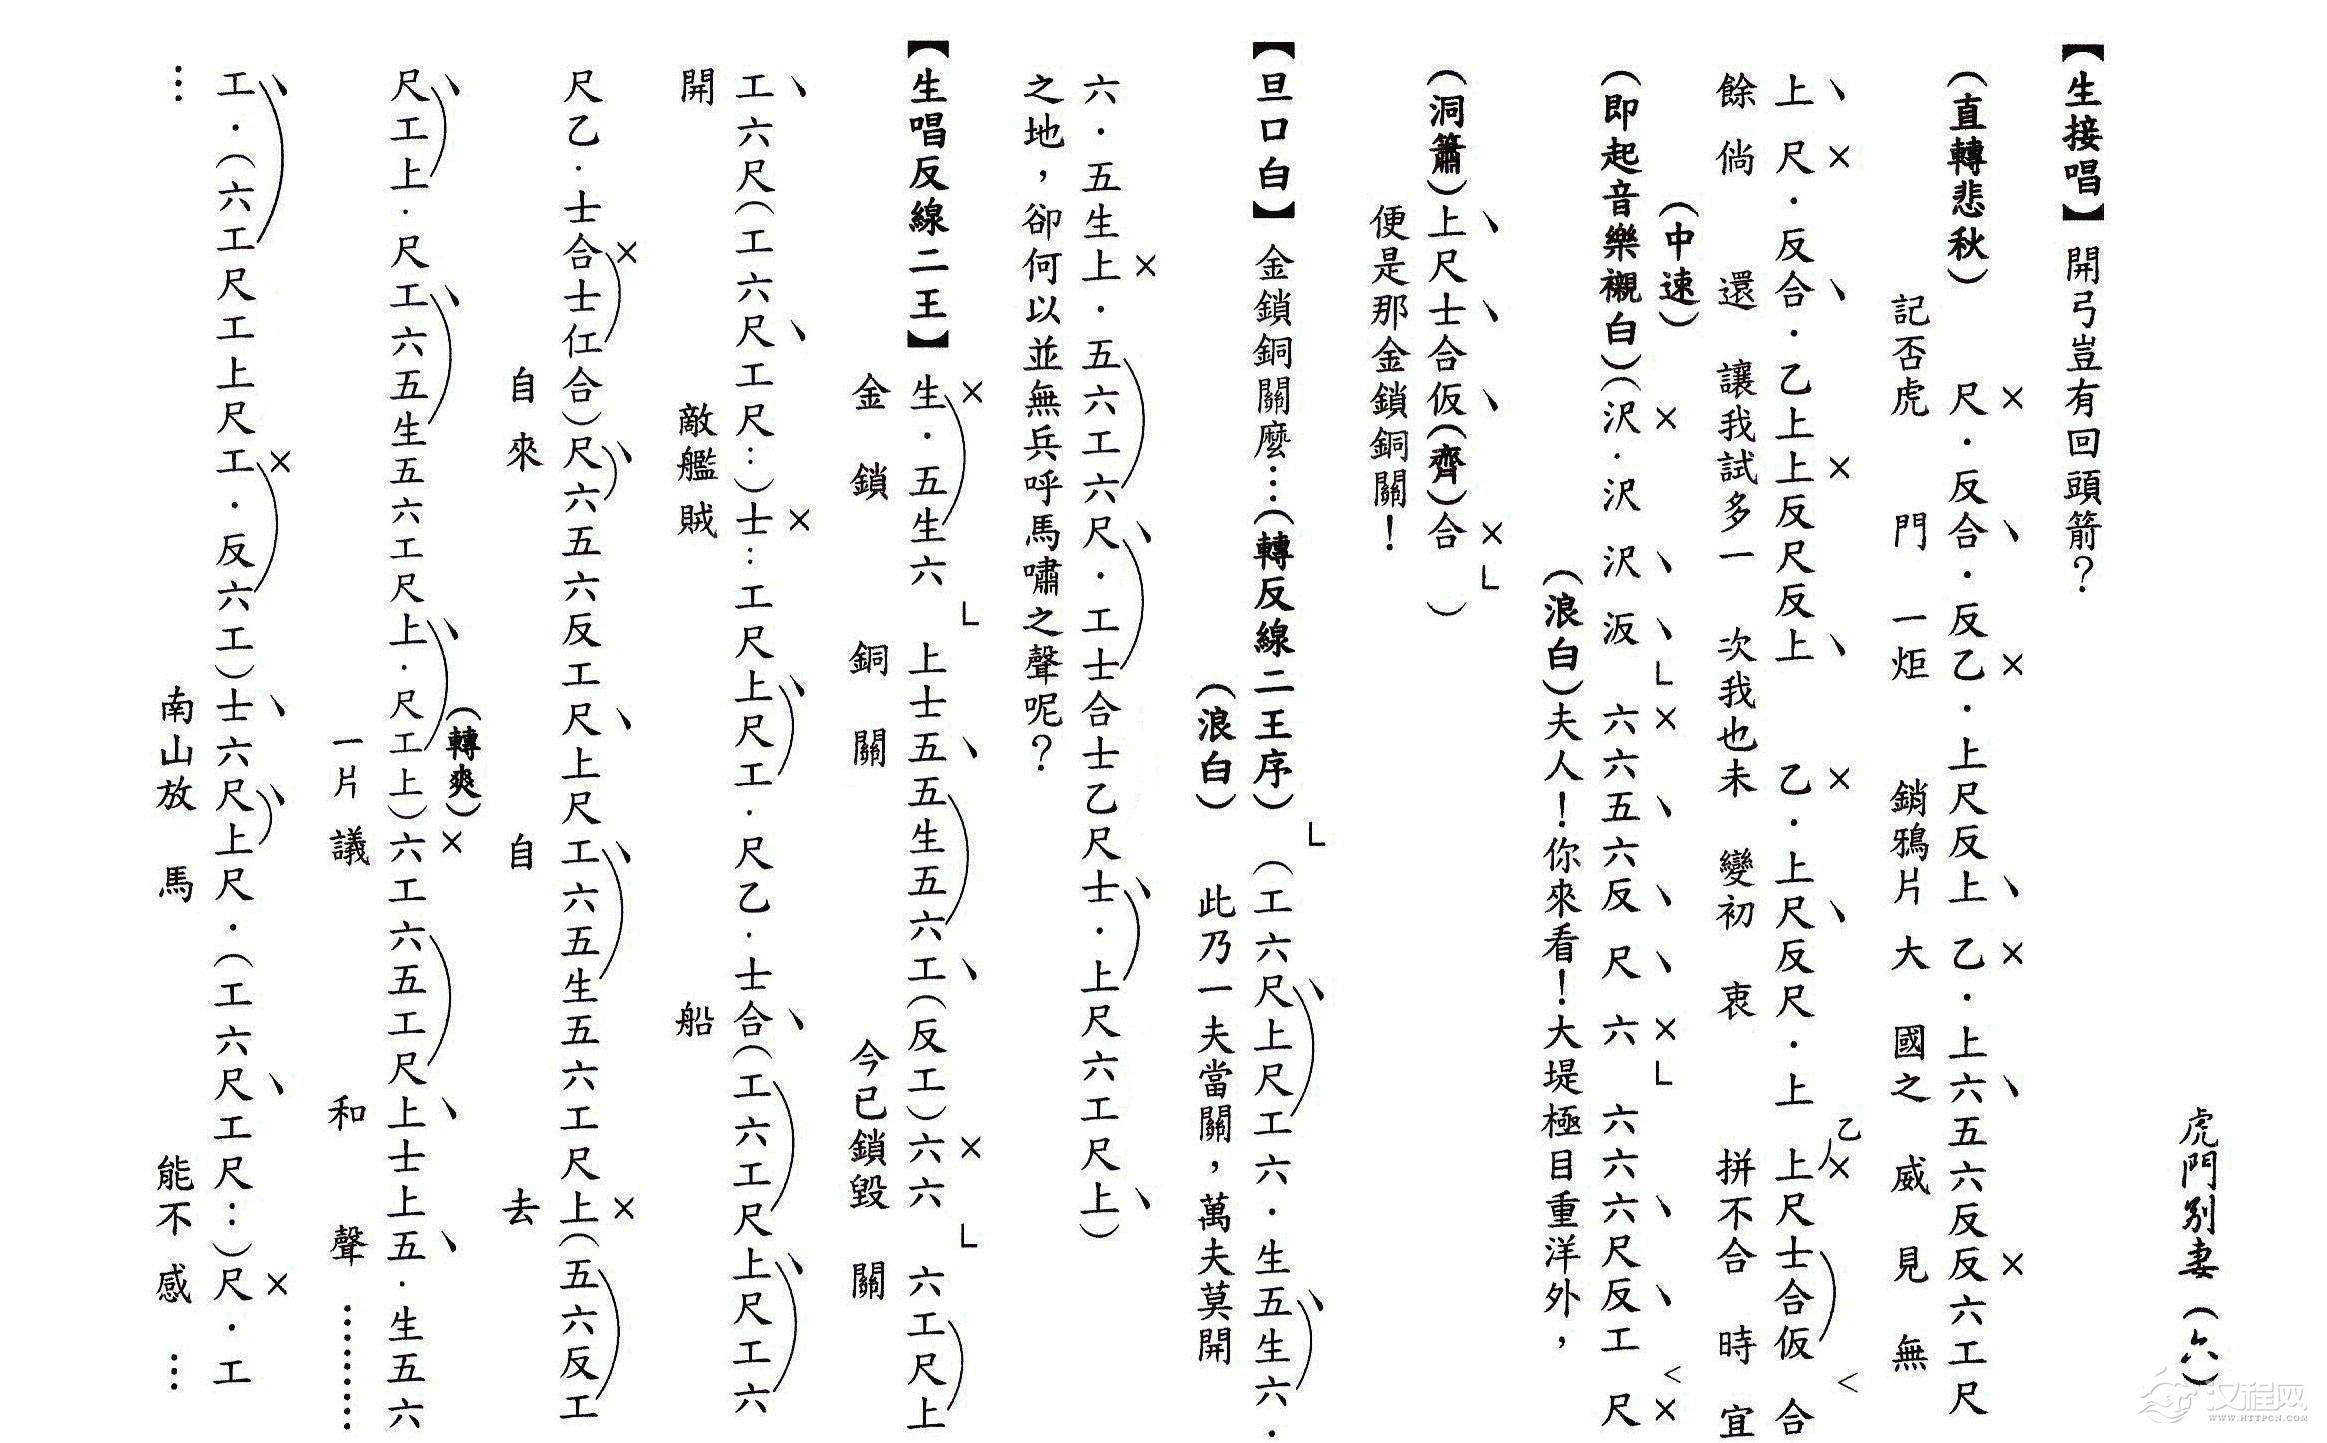 虎門別妻（六）
【生接唱】開弓豈有回頭箭？
（直轉悲秋）尺．反合．反乙．上尺反上乙．上六五六反反六工尺
記否虎門一炬銷鴉片大國之威見無
上尺．反合．乙上上反尺反上乙．上尺反尺．上乙上尺士合仮合
餘倘還讓我試多一次我也未變初衷拼不合時宜
（中速）
（即起音樂襯白）（沢．沢沢汳六六五六反尺六六六六尺反工尺
（浪白）夫人！你來看！大堤極目重洋外，
（洞簫）上尺士合仮（齊）合）
便是那金鎖銅關！
【旦口白】金鎖銅關麼…（轉反線二王序）（工六尺上尺工六．生五生六．
（浪白）此乃一夫當關，萬夫莫開
六．五生上．五六工六尺．工士合士乙尺士．上尺六工尺上）
之地，卻何以並無兵呼馬嘯之聲呢？
【生唱反線二王】生．五生六上士五五生五六工（反工）六六六工尺上
金鎖銅關今已鎖毀關
工六尺（工六尺工尺：）士：工尺上尺工．尺乙．士合（工六工尺上尺工六
開敵艦賊船
尺乙．士合士仜合）尺六五六反工尺上尺工六五生五六工尺上（五六反工
自來自去
（轉爽）
尺工上．尺工六五生五六工尺上．尺工上）六工六五工尺上士上五．生五六
一片議和聲………
工．（六工尺工上尺工．反六工）士六尺上尺．（工六尺工尺：）尺．工
…南山放馬能不感…
汉程网
WWW.HTTPCN.COM